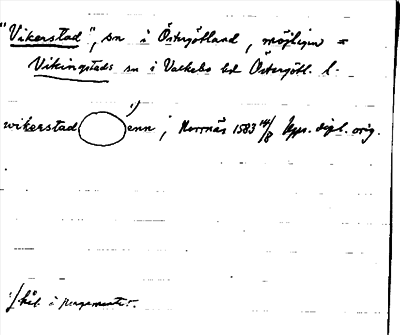 "Vikerstad", sn i Östergötland, möjligen =
Vikingstads sn i Valkebo hd Östergötl. l.
wikerstad 1) enn i Norrnäs 1583 14/8 Ups. dipl. orig.
1) hål i pergamentet.